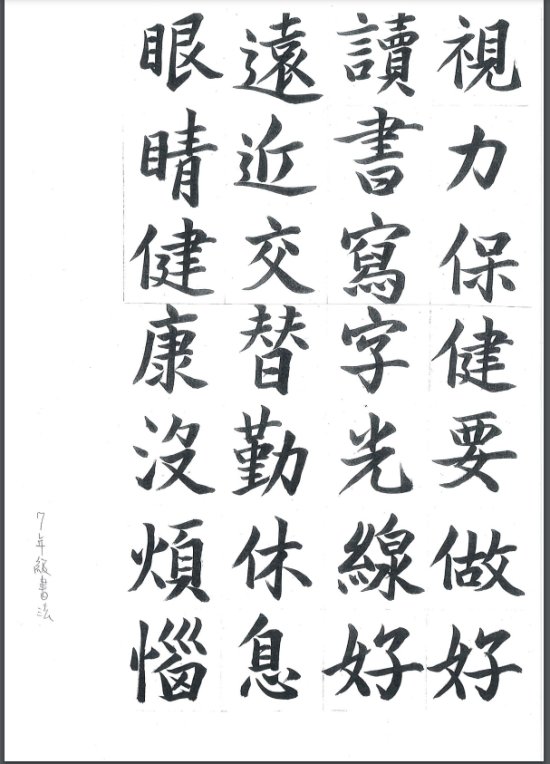 視力保健要做好
讀書寫字光線好
遠近交替勤休息
眼睛健康沒煩惱
7年級書法